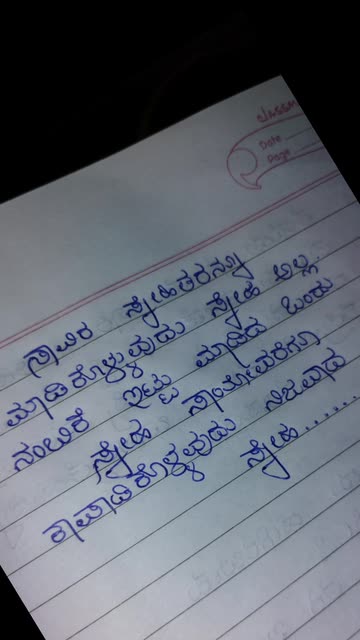 CLASSM
Date
Page
ಸಾವಿರ ಸ್ನೇಹಿತರನ್ನು
ಮಾಡಿಕೊಳ್ಳುವುದು ಸ್ನೇಹ ಅಲ್ಲ
ನಂಬಿಕೆ ಇಟ್ಟು ಮಾಡಿದ ಒಂದು
ಸ್ನೇಹ ಸಾಯೋವರೆಗೂ
ಕಾಪಾಡಿಕೊಳ್ಳವುದು ನಿಜವಾದ
ಸ್ನೇಹ......